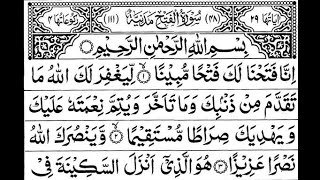 اٰیَاتُهَا ۲۹ (۴۸) سُوْرَةُ الْفَتْحِ مَدَنِیَّةٌ (۱۱۱) رُكُوْعَاتُهَا ۴
بِسْمِ اللّٰهِ الرَّحْمٰنِ الرَّحِیْمِ
اِنَّا فَتَحْنَا لَكَ فَتْحًا مُّبِیْنًا ۙ۱ لِّیَغْفِرَ لَكَ اللّٰهُ مَا
تَقَدَّمَ مِنْ ذَنْۢبِكَ وَمَا تَاَخَّرَ وَیُتِمَّ نِعْمَتَهٗ عَلَیْكَ
وَیَهْدِیَكَ صِرَاطًا مُّسْتَقِیْمًا ۙ۲ وَّیَنْصُرَكَ اللّٰهُ
نَصْرًا عَزِیْزًا ۳ هُوَ الَّذِیْۤ اَنْزَلَ السَّكِیْنَةَ فِیْ